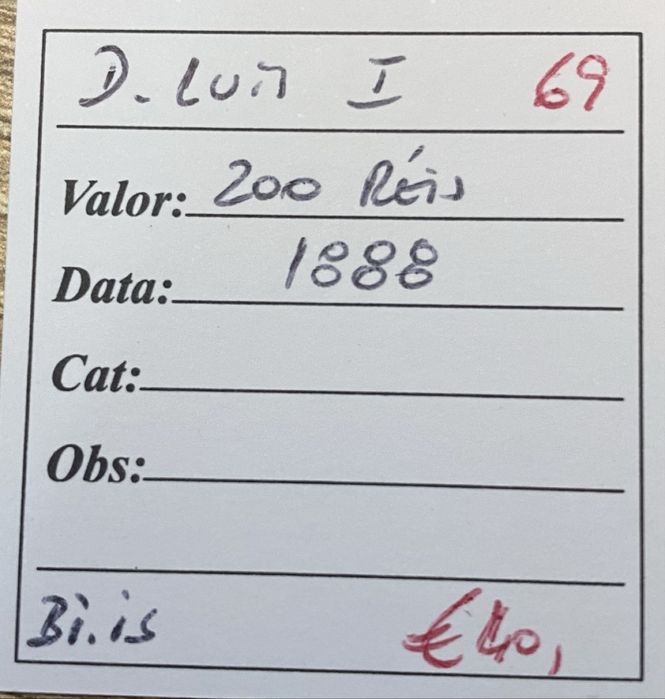 D. Luis I 69
Valor: 200 Réis
Data: 1888
Cat:
Obs:
€40,